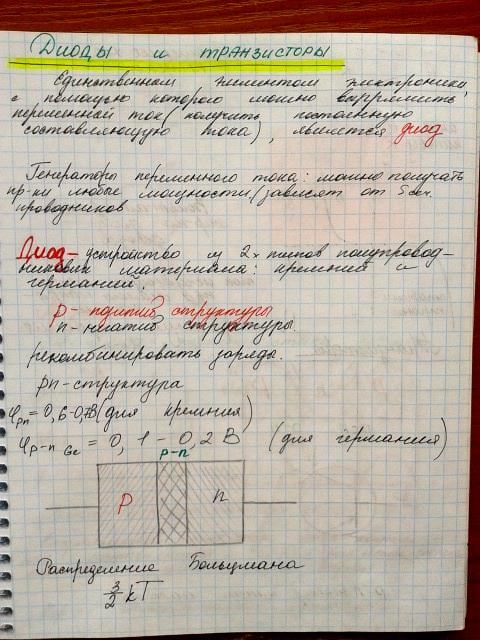 Диоды и транзисторы
Единственным элементом электроники,
с помощью которого можно выпрямить
переменный ток (получить постоянную
составляющую тока), является диод
Генераторы переменного тока: можно получать
пр-ки любые мощности (зависят от S сеч.
проводников
Диод – устройство из 2х типов полупровод-
никовых материала: кремний и
германий.
p – позитив структуры
n – негатив структуры.
рекомбинировать заряды.
pn – структура
φpn = 0,6-0,7В (для кремния)
φp-n Ge = 0,1 – 0,2 В (для германия)
p-n
p n
Распределение Больцмана
3/2 kT